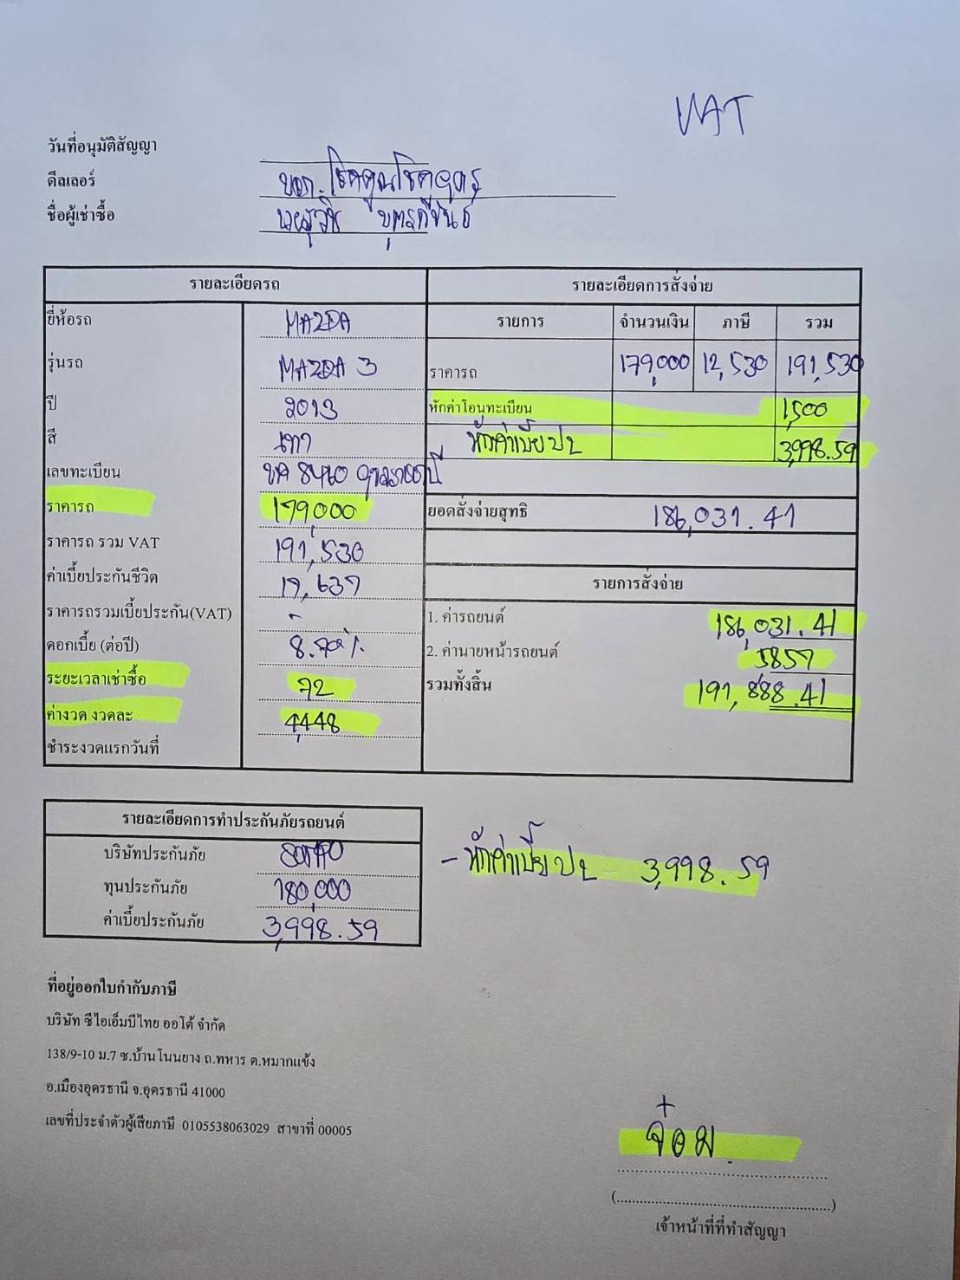 VAT
วันที่อนุมัติสัญญา
ดีลเลอร์ บจก. โชคคูณโชคอุดร
ชื่อผู้เช่าซื้อ
รายละเอียดรถ
ยี่ห้อรถ MAZDA
รุ่นรถ MAZDA 3
ปี 2013
สี เทา
เลขทะเบียน 8460 อุดรธานี
ราคารถ 179,000
ราคารถ รวม VAT 191,530
ค่าเบี้ยประกันชีวิต 17,637
ราคารถรวมเบี้ยประกัน(VAT) -
ดอกเบี้ย (ต่อปี)
ระยะเวลาเช่าซื้อ 72
ค่างวด งวดละ 4,448
ชำระงวดแรกวันที่
รายละเอียดการสั่งจ่าย
รายการ จำนวนเงิน ภาษี รวม
ราคารถ 179,000 12,530 191,530
หักค่าโอนทะเบียน 1,500
หักค่าเบี้ย ปภ 3,998.59
ยอดสั่งจ่ายสุทธิ 186,031.41
รายการสั่งจ่าย
1. ค่ารถยนต์ 186,031.41
2. ค่านายหน้ารถยนต์ 5,857
รวมทั้งสิ้น 191,888.41
รายละเอียดการทำประกันภัยรถยนต์
บริษัทประกันภัย
ทุนประกันภัย 180,000
ค่าเบี้ยประกันภัย 3,998.59
- หักค่าเบี้ย ปภ 3,998.59
ที่อยู่ออกใบกำกับภาษี
บริษัท ซีไอเอ็มบีไทย ออโต้ จำกัด
138/9-10 ม.7 ซ.บ้านโนนยาง ถ.ทหาร ต.หมากแข้ง
อ.เมืองอุดรธานี จ.อุดรธานี 41000
เลขที่ประจำตัวผู้เสียภาษี 0105538063029 สาขาที่ 00005
+
จ๋อม
(......................................................)
เจ้าหน้าที่ที่ทำสัญญา